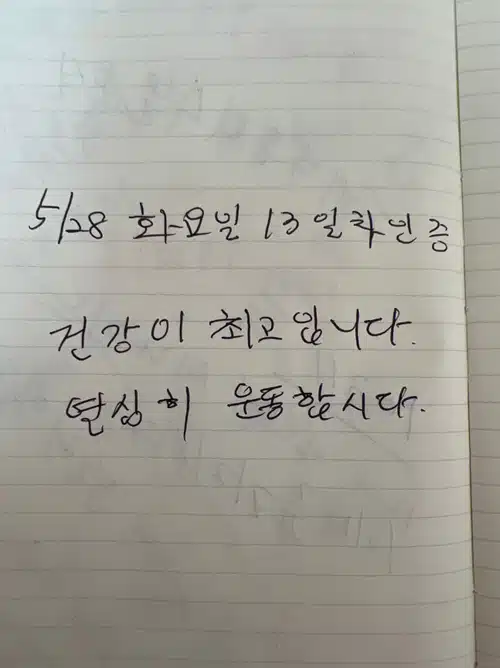 5/28 화요일 13일차인증
건강이 최고입니다.
열심히 운동합시다.